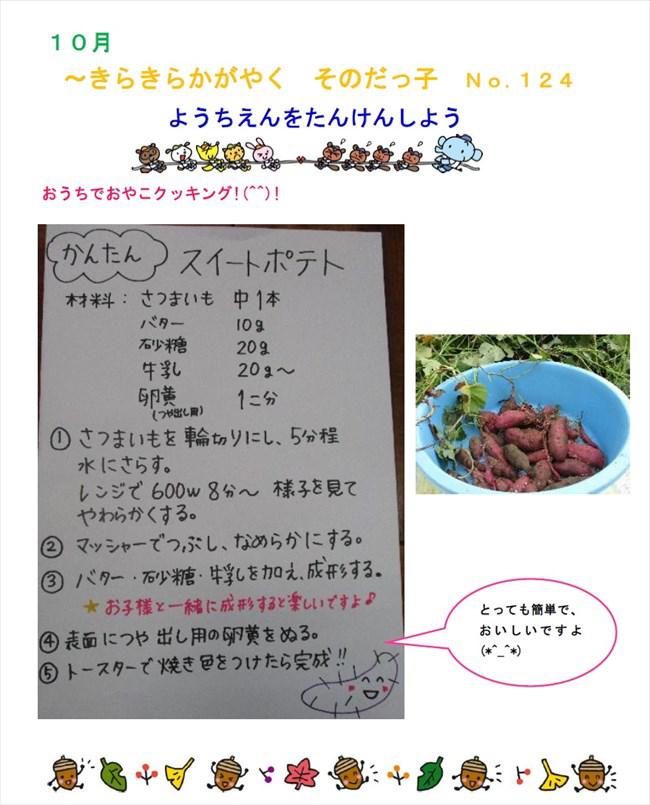 １０月
～きらきらかがやく　そのだっ子　Ｎｏ．１２４
ようちえんをたんけんしよう
おうちでおやこクッキング!(^^)!
かんたん スイートポテト
材料： さつまいも 中1本
バター 10g
砂糖 20g
牛乳 20g～
卵黄 1コ分
(つや出し用)
① さつまいもを輪切りにし、5分程
水にさらす。
レンジで 600w 8分～ 様子を見て
やわらかくする。
② マッシャーでつぶし、なめらかにする。
③ バター・砂糖・牛乳を加え、成形する。
★お子様と一緒に成形すると楽しいですよ♪
④ 表面につや出し用の卵黄をぬる。
⑤ トースターで焼き色をつけたら完成!!
とっても簡単で、
おいしいですよ
(*^_^*)